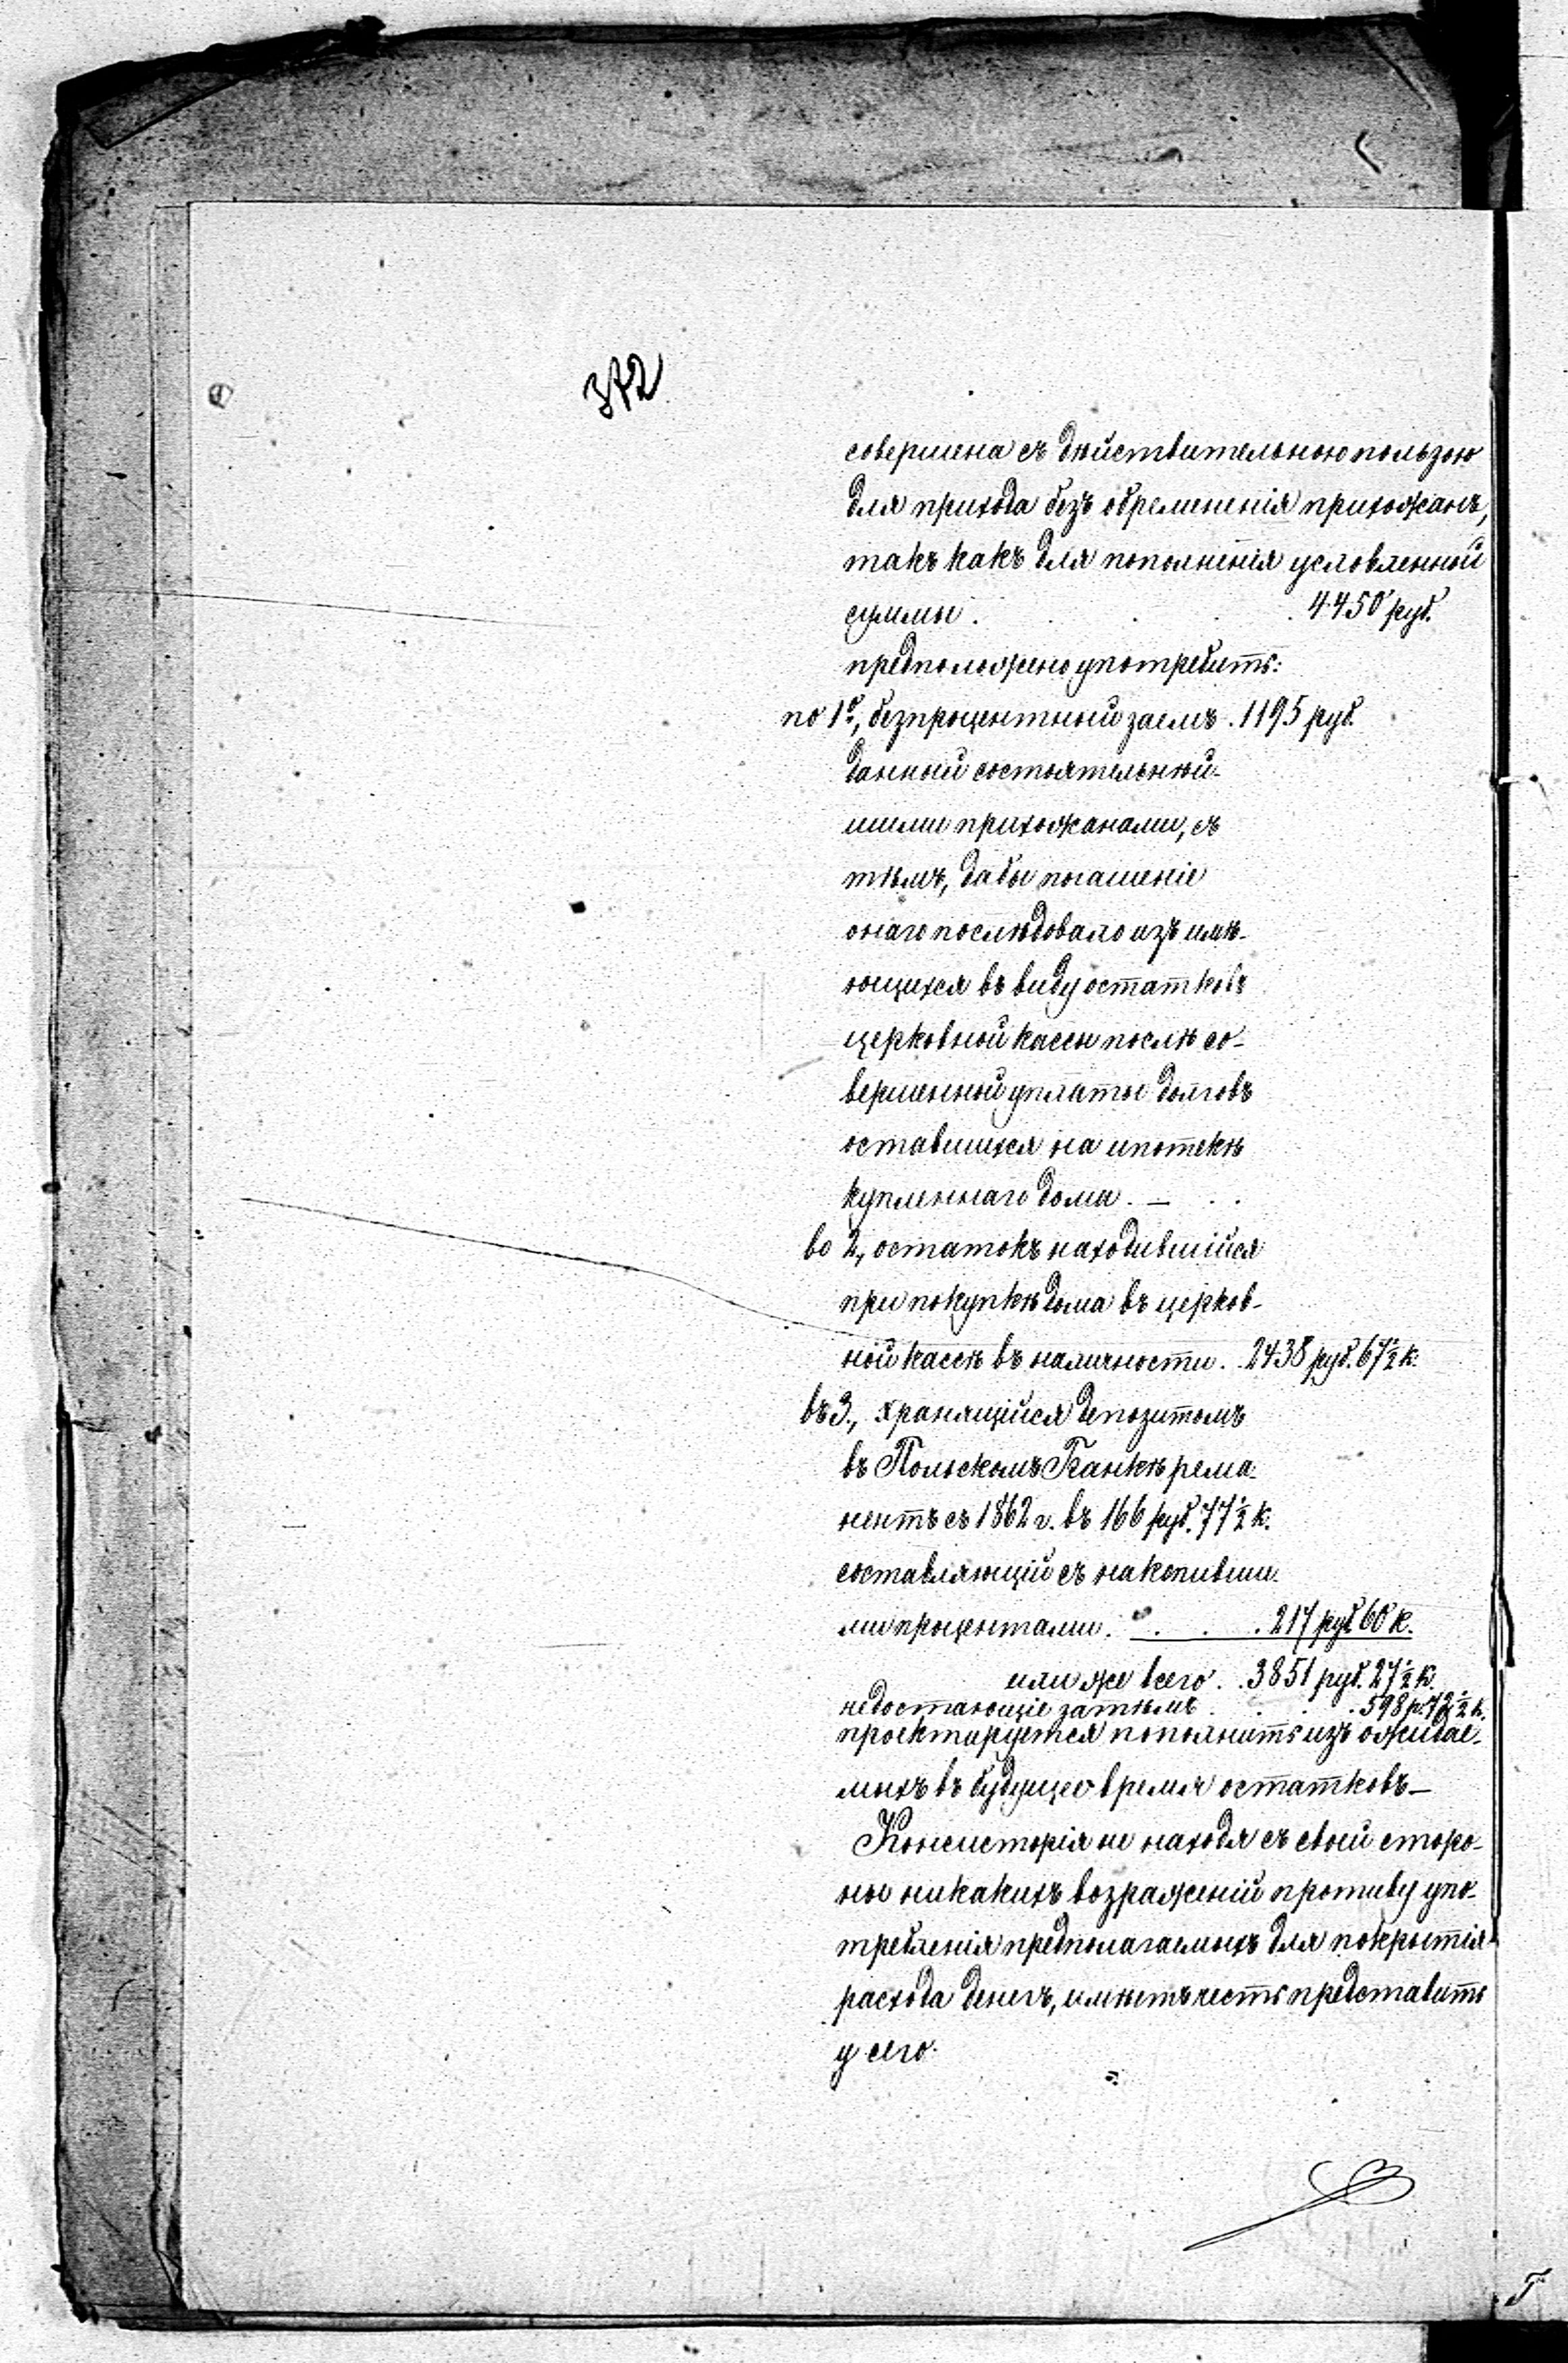 372
совершена съ дѣйствительною пользою
для прихода безъ обремененія прихожанъ,
такъ какъ для пополненія условленной
суммы . . . . 4450 руб.
предположено употребить:
по 1е, безпроцентный заемъ . 1195 руб.
данный состоятельнѣй-
шими прихожанами, съ
тѣмъ, дабы погашеніе
онаго послѣдовало изъ имѣ-
ющихся въ виду остатковъ
церковной кассы послѣ со-
вершенной уплаты долговъ
оставшихся на ипотекѣ
купленнаго дома . — . .
во 2, остатокъ находившійся
при покупкѣ дома въ церков-
ной кассѣ въ наличности . . 2438 руб. 67½ к.
въ 3, хранящійся депозитомъ
въ Польскомъ Банкѣ рема-
нентъ съ 1862 г. въ 166 руб. 77½ к.
составляющій съ накопивши-
ми процентами . . . . 217 руб 60 к.
или же всего . . 3851 руб. 27½ к.
недостающіе затѣмъ . . . . 598 р. 72½ к.
проектируется пополнить изъ ожидае-
мыхъ въ будущее время остатковъ —
Консисторія не находя съ своей сторо-
ны никакихъ возраженій противу упо-
требленія предполагаемыхъ для покрытія
расхода денегъ, имѣетъ честь представить
у сего.